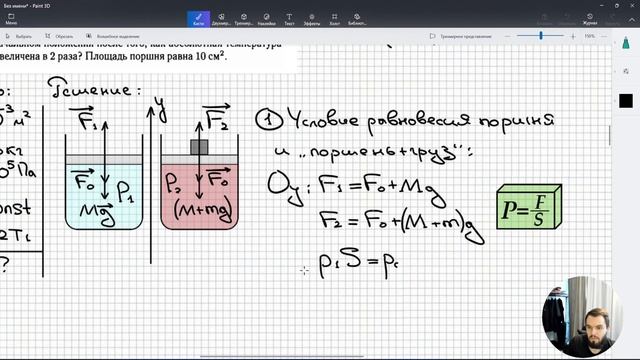 Без имени* - Paint 3D
Меню
Кисти
Журнал
Выделить
Обрезать
Волшебное выделение
Трехмерное представление
150%
начальном положении после того, как абсолютная температура
величена в 2 раза? Площадь поршня равна 10 см².
Решение:
⁻³ м²
кг
⁵ Па
const
2T₁
?
F₁
y
F₂
F₀
p₁
Mg
p₂
F₀
(M+m)g
① Условие равновесия поршня
и „поршень+груз":
Oy: F₁ = F₀ + Mg
F₂ = F₀ + (M + m)g
p₁S = p₀
P = F/S